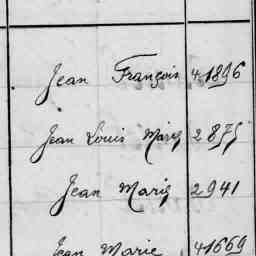 Jean François 41896
Jean Louis Marie 2875
Jean Marie 2941
Jean Marie 41669